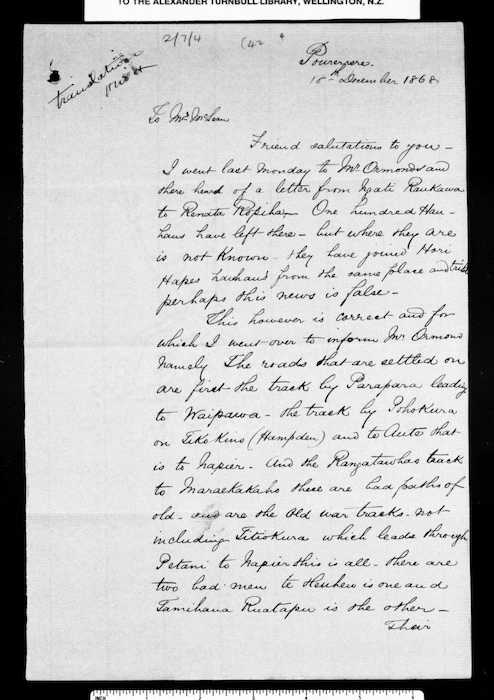 TO THE ALEXANDER TURNBULL LIBRARY, WELLINGTON, N.Z.
2/7/4 (42
translation
Pourerere.
18th December 1868
To Mr McLean
Friend salutations to you -
I went last Monday to Mr Ormonds and
there heard of a letter from Ngati Raukawa
to Renata Ropiha - One hundred Hau-
haus have left there - but where they are
is not known - they have joined Hori
Hapes hauhaus from the same place and tribe
perhaps this news is false -
This however is correct and for
which I went over to inform Mr Ormond
namely The roads that are settled on
are first the track by Parapara leading
to Waipawa - the track by Pohokura
on Tikokino (Hampden) and to Aute that
is to Napier - And the Rangatawhao track
to Maraekakaho these are bad paths of
old - and are the old war tracks - not
including Titiokura which leads through
Petani to Napier this is all - there are
two bad men te Heuheu is one and
Tamihana Ruatapu is the other -
Their
INCH